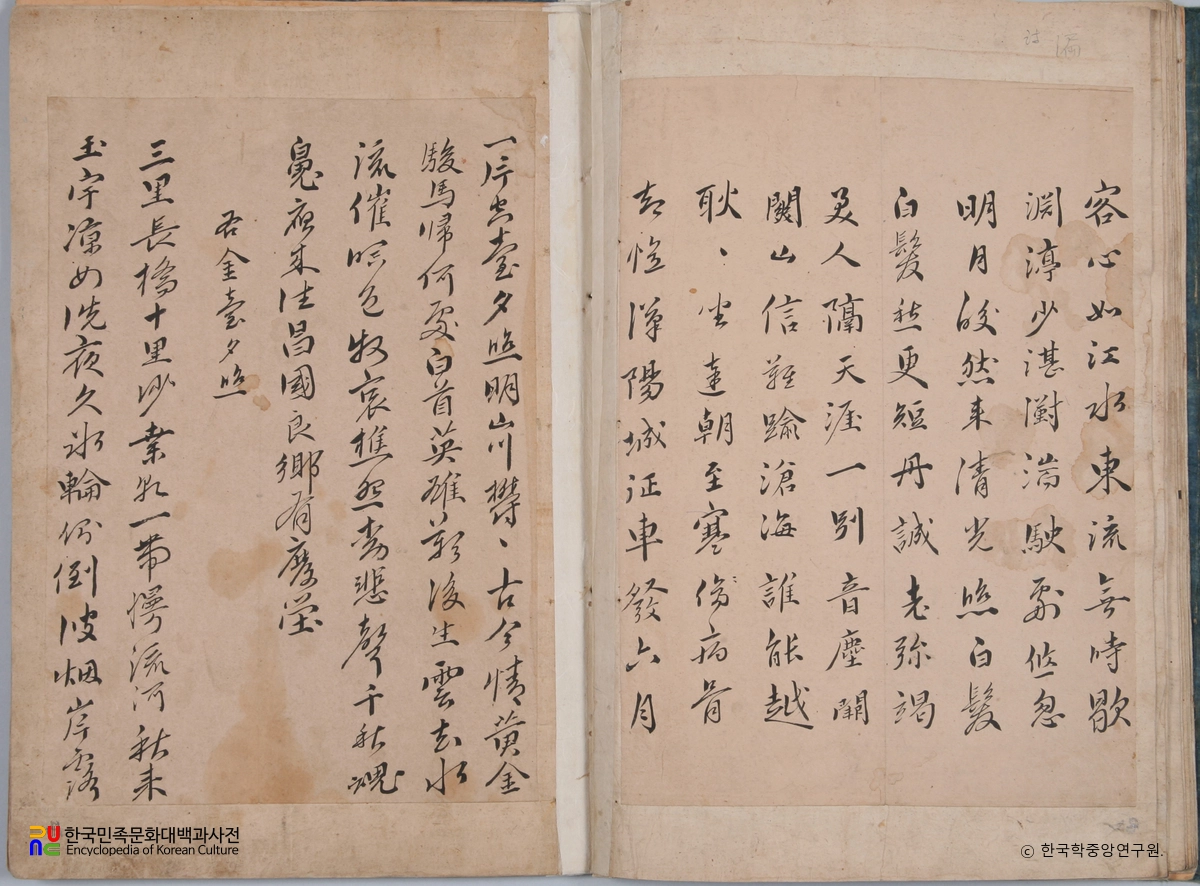 客心如江水東流無時歇
淵渟少湛澍湍駛劇倏忽
明月皎然来清光照白髮
白髮愁更短丹誠老弥竭
美人隔天涯一別音塵闕
關山信難踰滄海誰能越
耿、坐達朝至寒傷病骨
去憶漢陽城征車發六月
一片空臺夕照明山川欝、古今情黄金
駿馬帰何處白首英雄後生雲去水
流催暝色牧哀樵怨動悲聲千秋魂
魄夜来往昌國良郷有廢塋
右金臺夕照
三里長橋十里沙一帶流河秋来
玉宇凉如洗夜久氷輪倒波烟岸露
한국민족문화대백과사전
Encyclopedia of Korean Culture
ⓒ 한국학중앙연구원.